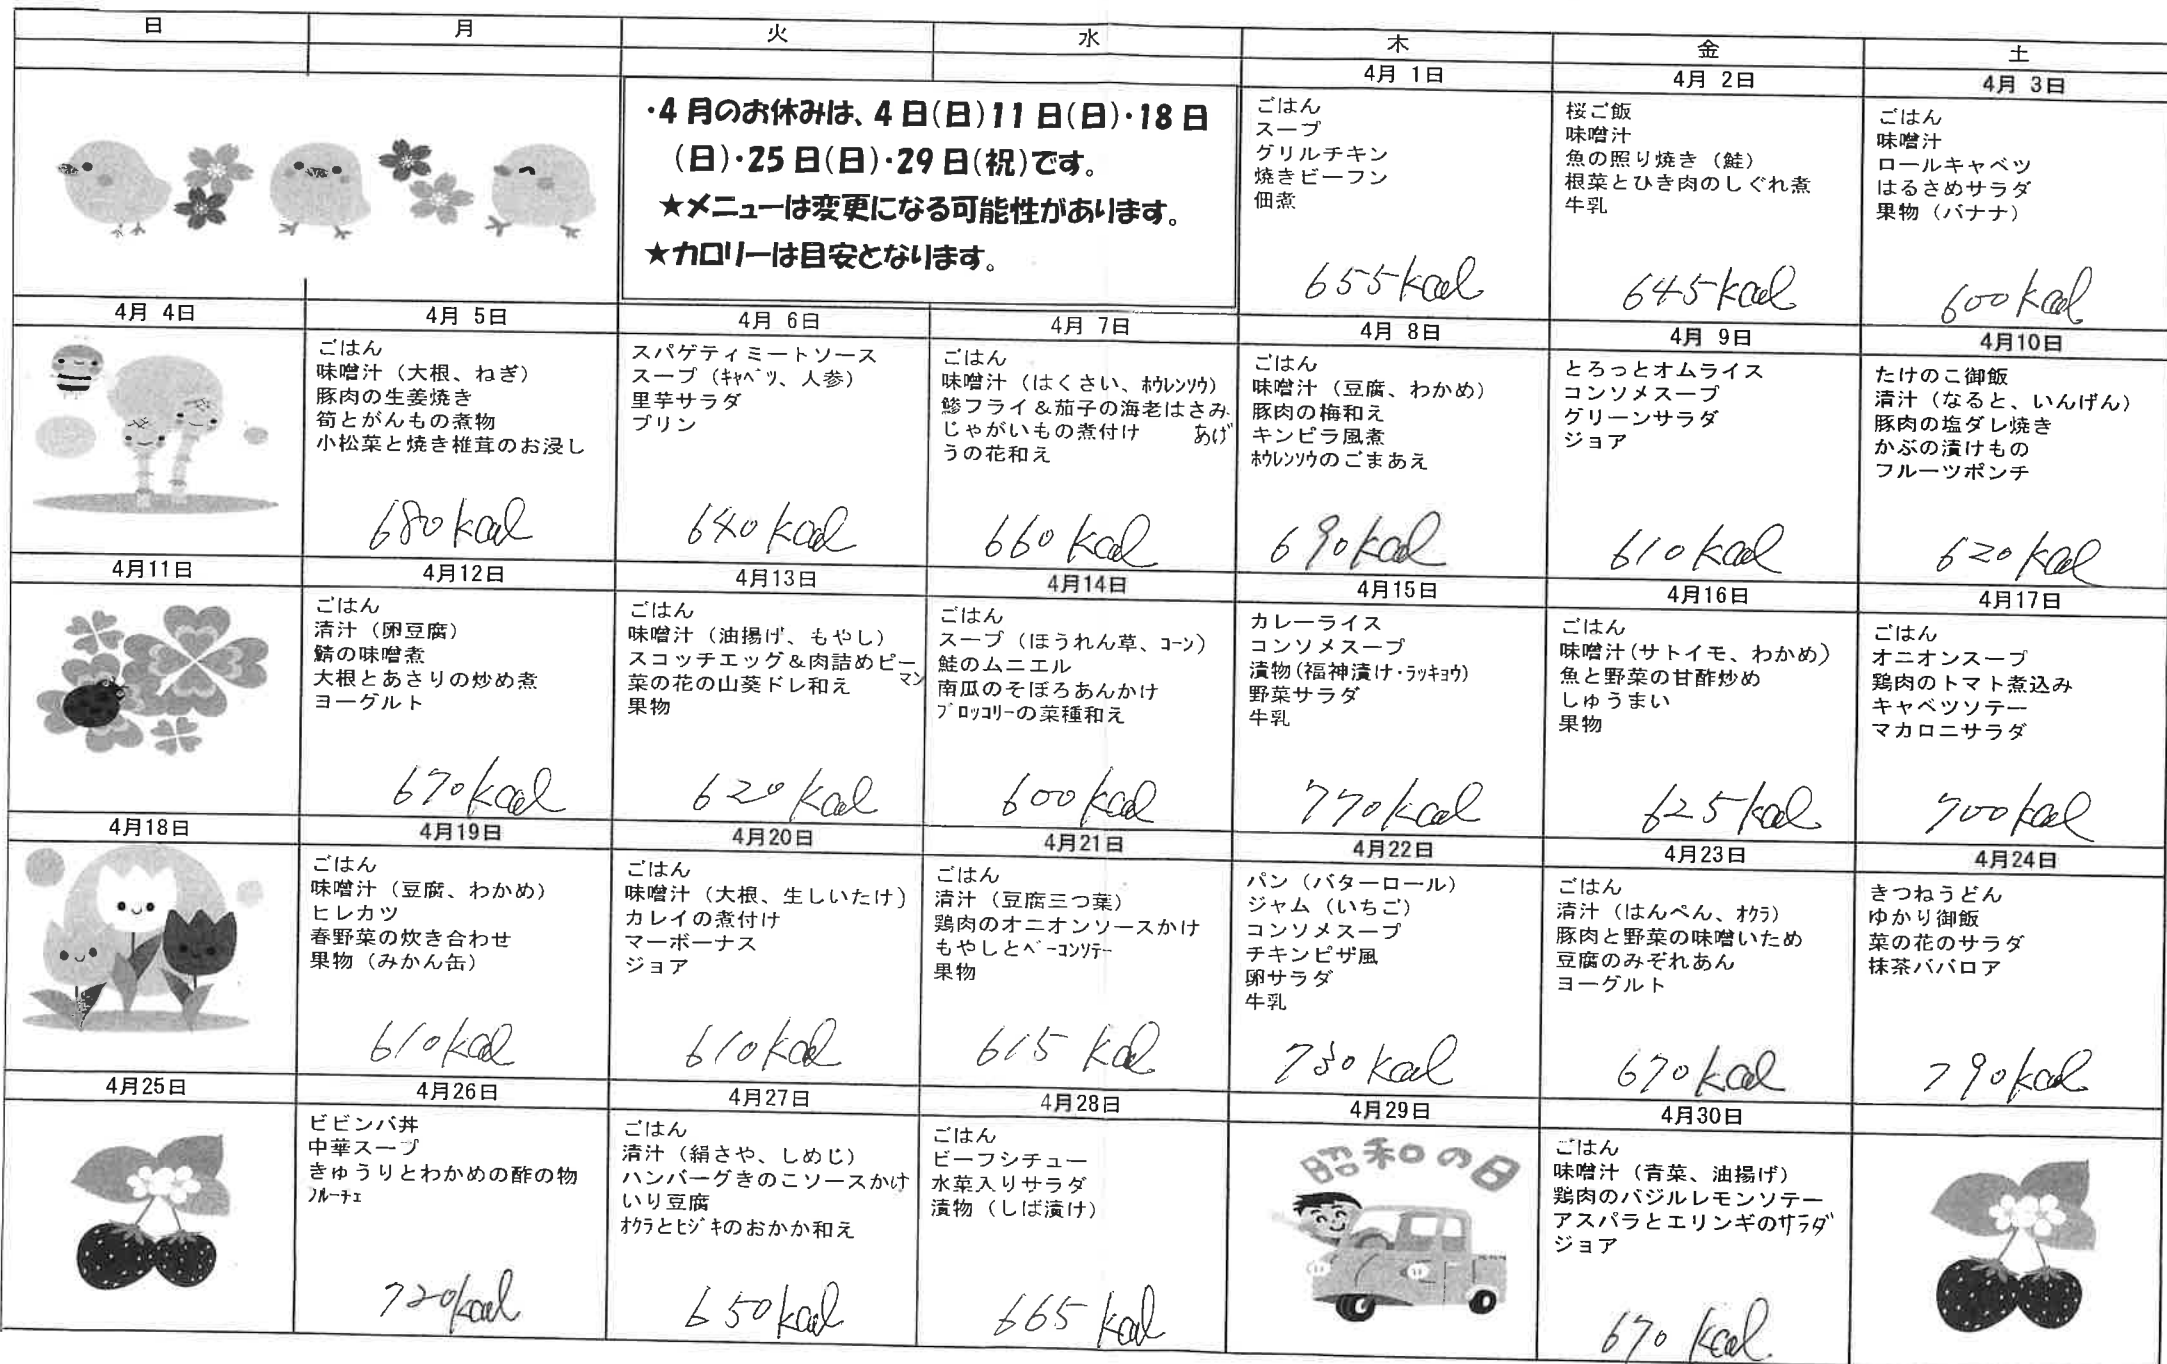 日 月 火 水 木 金 土
・4月のお休みは、4日(日)11日(日)・18日
(日)・25日(日)・29日(祝)です。
★メニューは変更になる可能性があります。
★カロリーは目安となります。
4月 1日
ごはん
スープ
グリルチキン
焼きビーフン
佃煮
655kcal
4月 2日
桜ご飯
味噌汁
魚の照り焼き（鮭）
根菜とひき肉のしぐれ煮
牛乳
645kcal
4月 3日
ごはん
味噌汁
ロールキャベツ
はるさめサラダ
果物（バナナ）
600kcal
4月 4日
4月 5日
ごはん
味噌汁（大根、ねぎ）
豚肉の生姜焼き
筍とがんもの煮物
小松菜と焼き椎茸のお浸し
680kcal
4月 6日
スパゲティミートソース
スープ（ｷｬﾍﾞﾂ、人参）
里芋サラダ
プリン
640kcal
4月 7日
ごはん
味噌汁（はくさい、ﾎｳﾚﾝｿｳ）
鯵フライ＆茄子の海老はさみ
じゃがいもの煮付け あげ
うの花和え
660kcal
4月 8日
ごはん
味噌汁（豆腐、わかめ）
豚肉の梅和え
キンピラ風煮
ﾎｳﾚﾝｿｳのごまあえ
690kcal
4月 9日
とろっとオムライス
コンソメスープ
グリーンサラダ
ジョア
610kcal
4月10日
たけのこ御飯
清汁（なると、いんげん）
豚肉の塩ダレ焼き
かぶの漬けもの
フルーツポンチ
620kcal
4月11日
4月12日
ごはん
清汁（卵豆腐）
鯖の味噌煮
大根とあさりの炒め煮
ヨーグルト
670kcal
4月13日
ごはん
味噌汁（油揚げ、もやし）
スコッチエッグ＆肉詰めピー
菜の花の山葵ドレ和え マン
果物
620kcal
4月14日
ごはん
スープ（ほうれん草、ｺｰﾝ）
鮭のムニエル
南瓜のそぼろあんかけ
ﾌﾞﾛｯｺﾘｰの菜種和え
600kcal
4月15日
カレーライス
コンソメスープ
漬物(福神漬け・ﾗｯｷｮｳ)
野菜サラダ
牛乳
770kcal
4月16日
ごはん
味噌汁(サトイモ、わかめ)
魚と野菜の甘酢炒め
しゅうまい
果物
625kcal
4月17日
ごはん
オニオンスープ
鶏肉のトマト煮込み
キャベツソテー
マカロニサラダ
700kcal
4月18日
4月19日
ごはん
味噌汁（豆腐、わかめ）
ヒレカツ
春野菜の炊き合わせ
果物（みかん缶）
610kcal
4月20日
ごはん
味噌汁（大根、生しいたけ）
カレイの煮付け
マーボーナス
ジョア
610kcal
4月21日
ごはん
清汁（豆腐三つ葉）
鶏肉のオニオンソースかけ
もやしとﾍﾞｰｺﾝｿﾃｰ
果物
615 kcal
4月22日
パン（バターロール）
ジャム（いちご）
コンソメスープ
チキンピザ風
卵サラダ
牛乳
730kcal
4月23日
ごはん
清汁（はんぺん、ｵｸﾗ）
豚肉と野菜の味噌いため
豆腐のみぞれあん
ヨーグルト
670kcal
4月24日
きつねうどん
ゆかり御飯
菜の花のサラダ
抹茶ババロア
790kcal
4月25日
4月26日
ビビンバ丼
中華スープ
きゅうりとわかめの酢の物
ﾌﾙｰﾁｪ
720kcal
4月27日
ごはん
清汁（絹さや、しめじ）
ハンバーグきのこソースかけ
いり豆腐
ｵｸﾗとﾋｼﾞｷのおかか和え
650kcal
4月28日
ごはん
ビーフシチュー
水菜入りサラダ
漬物（しば漬け）
665 kcal
4月29日
昭和の日
4月30日
ごはん
味噌汁（青菜、油揚げ）
鶏肉のバジルレモンソテー
アスパラとエリンギのサラダ
ジョア
670 kcal